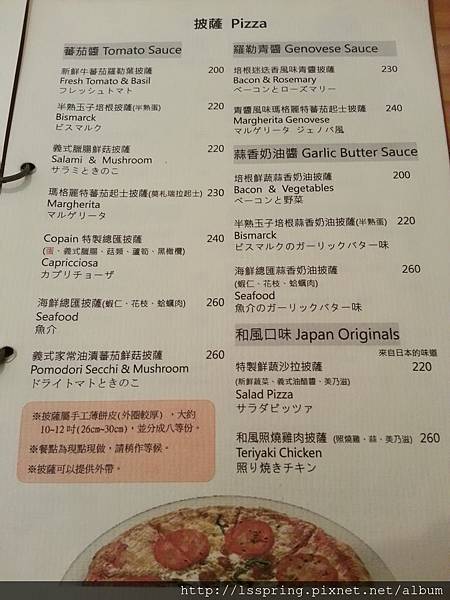 披薩 Pizza
蕃茄醬 Tomato Sauce
新鮮牛蕃茄羅勒葉披薩 200
Fresh Tomato & Basil
フレッシュトマト
半熟玉子培根披薩(半熟蛋) 220
Bismarck
ビスマルク
義式臘腸鮮菇披薩 220
Salami & Mushroom
サラミときのこ
瑪格麗特蕃茄起士披薩(莫札瑞拉起士) 230
Margherita
マルゲリータ
Copain 特製總匯披薩 240
(蛋、義式臘腸、菇類、蘆筍、黑橄欖)
Capricciosa
カプリチョーザ
海鮮總匯披薩(蝦仁、花枝、蛤蠣肉) 260
Seafood
魚介
義式家常油漬蕃茄鮮菇披薩 260
Pomodori Secchi & Mushroom
ドライトマトときのこ
※披薩屬手工薄餅皮(外圈較厚)，大約
10~12吋(26cm~30cm)，並分成八等份。
※餐點為現點現做，請稍作等候。
※披薩可以提供外帶。
羅勒青醬 Genovese Sauce
培根迷迭香風味青醬披薩 230
Bacon & Rosemary
ベーコンとローズマリー
青醬風味瑪格麗特蕃茄起士披薩 240
Margherita Genovese
マルゲリータ ジェノバ風
蒜香奶油醬 Garlic Butter Sauce
培根鮮蔬蒜香奶油披薩 200
Bacon & Vegetables
ベーコンと野菜
半熟玉子培根蒜香奶油披薩(半熟蛋) 220
Bismarck
ビスマルクのガーリックバター味
海鮮總匯蒜香奶油披薩 260
(蝦仁、花枝、蛤蠣肉)
Seafood
魚介のガーリックバター味
和風口味 Japan Originals
來自日本的味道
特製鮮蔬沙拉披薩 220
(新鮮蔬菜、義式油醋醬、美乃滋)
Salad Pizza
サラダピッツァ
和風照燒雞肉披薩 (照燒雞、蒜、美乃滋) 260
Teriyaki Chicken
照り焼きチキン
http://lsspring.pixnet.net/album